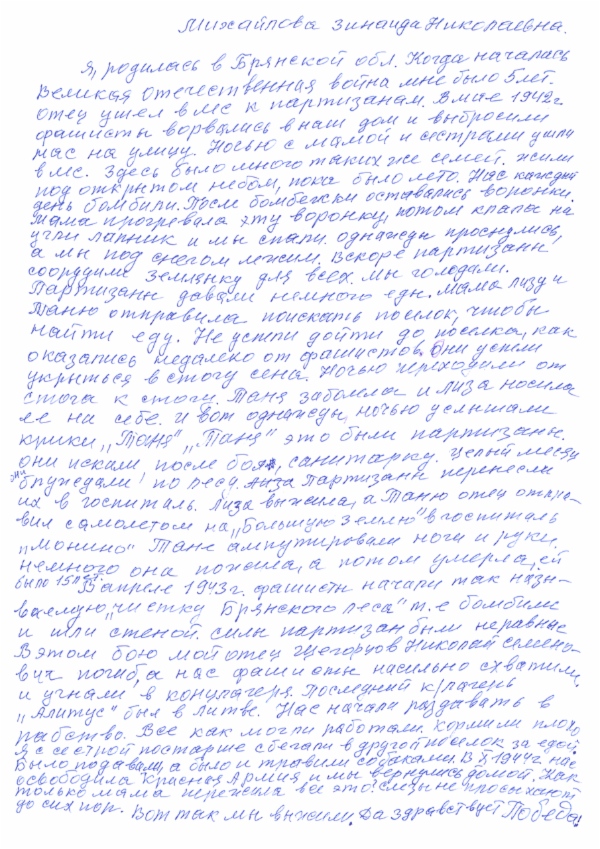 Михайлова Зинаида Николаевна.
Я, родилась в Брянской обл. Когда началась
Великая отечественная война мне было 5 лет.
Отец ушел в лес к партизанам. В мае 1942г
фашисты ворвались в наш дом и выбросили
нас на улицу. Ночью с мамой и сестрами ушли
в лес. Здесь было много таких же семей. Жили
под открытом небом, пока было лето. Нас каждый
день бомбили. После бомбежки оставались воронки.
Мама прогревала эту воронку, потом клала на
угли лапник и мы спали. Однажды проснулись,
а мы под снегом лежим. Вскоре партизаны
соорудили землянку для всех. Мы голодали.
Партизаны давали немного еды. Мама Лизу и
Таню отправила поискать поселок, чтобы
найти еду. Не успели дойти до поселка, как
оказались недалеко от фашистов. Они успели
укрыться в стогу сена. Ночью переходили от
стога к стогу. Таня заболела и Лиза носила
ее на себе. И вот однажды, ночью услышали
крики „Таня" „Таня" это были партизаны.
Они искали, после боя, санитарку. Целый месяц
блуждали по лесу. Лиза Партизаны перенесли
их в госпиталь. Лиза выжила, а Таню отец отпра-
вил самолетом на „Большую Землю" в госпиталь
„Монино" Тане ампутировали ноги и руки.
немного она пожила, а потом умерла, ей
было 15 лет.
В апреле 1943г. фашисты начали так назы-
ваемую „чистку Брянского леса" т.е бомбили
и шли стеной. Силы партизан были неравные
В этом бою мой отец Щегорцов Николай Семено-
вич погиб, а нас фашисты насильно схватили,
и угнали в концлагеря. Последний к/лагерь
„Алитус" был в Литве. Нас начали раздавать в
рабство. Все как могли работали. Кормили плохо,
я с сестрой постарше сбегали в другой посёлок за едой.
Было подавали, а было и травили собаками. В X 1944г нас
освободила Красная Армия и мы вернулись домой. Как
только мама пережила все это? Слезы не просыхают
до сих пор. Вот так мы выжили. Да здравствует Победа!